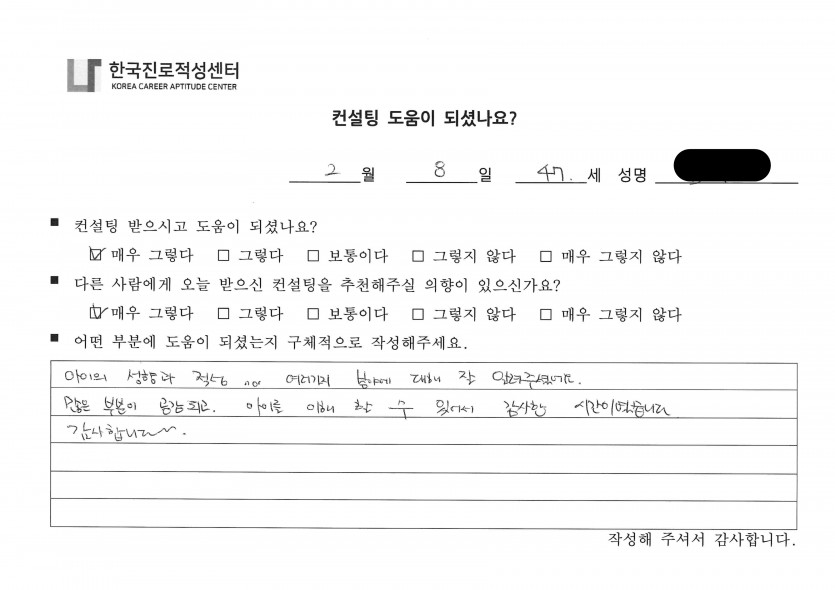 한국진로적성센터
KOREA CAREER APTITUDE CENTER
컨설팅 도움이 되셨나요?
2 월 8 일 47. 세 성명
■ 컨설팅 받으시고 도움이 되셨나요?
☑ 매우 그렇다 □ 그렇다 □ 보통이다 □ 그렇지 않다 □ 매우 그렇지 않다
■ 다른 사람에게 오늘 받으신 컨설팅을 추천해주실 의향이 있으신가요?
☑ 매우 그렇다 □ 그렇다 □ 보통이다 □ 그렇지 않다 □ 매우 그렇지 않다
■ 어떤 부분에 도움이 되셨는지 구체적으로 작성해주세요.
아이의 성향과 적성 ... 여러가지 분야에 대해 잘
많은 부분이 공감되고. 아이를 이해 할 수 있어서 감사한 시간이였습니다
감사합니다~.
작성해 주셔서 감사합니다.